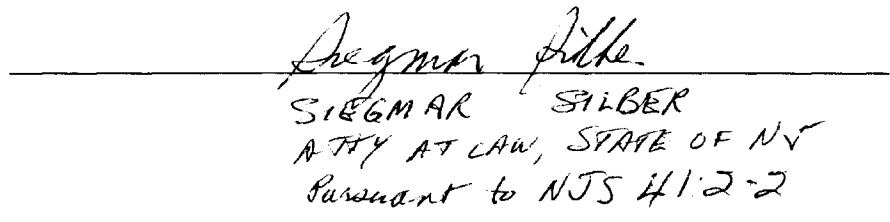 Siegmar Silber
SIEGMAR SILBER
ATTY AT LAW, STATE OF NJ
Pursuant to NJS 41:2-2